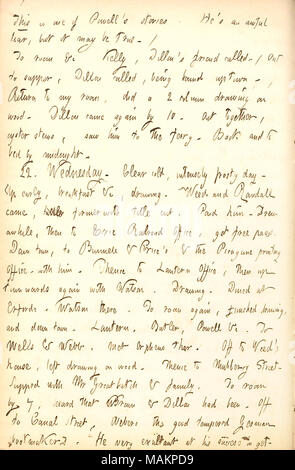 This is one of Powell's stories. He's an awful
liar, but it may be true. /
To room &c. Kelly, Dillon's friend called. / Out
to supper, Dillon called, being bound up town. /
Return to my room, did a 2 column drawing on
wood. Dillon came again by 10. Out together,
oyster stews, saw him to the ferry. Back and to
bed by midnight.
22. Wednesday. Clear cold, intensely frosty day.
Up early, breakfast &c, drawing. Wood and Randall
came, former with title cut. Paid him. Drew
awhile, then to Erie Railroad Office, got free pass.
Down town, to Bunnell & Price's & the Picayune printing
Office with him. Thence to Lantern Office, then up
townwards again with Watson. Drawing. Dined at
Erfords. Watson there. To room again, finished drawing,
and down town. Lantern, Butler, Powell &c. To
Wells & Webb. Met Orpheus there. Off to Wood's
house, left drawing on wood. Thence to Mulberry Street.
Supped with Mr Greatbatch & family. To room
by 7, heard that Brown & Dillon had been. Off
to Canal Street, Webers the good tempered German
bootmakers. He very exultant at his success in get-
alamy
Image ID: MAKPD9
www.alamy.com